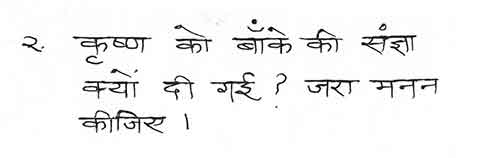 २. कृष्ण को बाँके की संज्ञा
क्यों दी गई ? जरा मनन
कीजिए ।